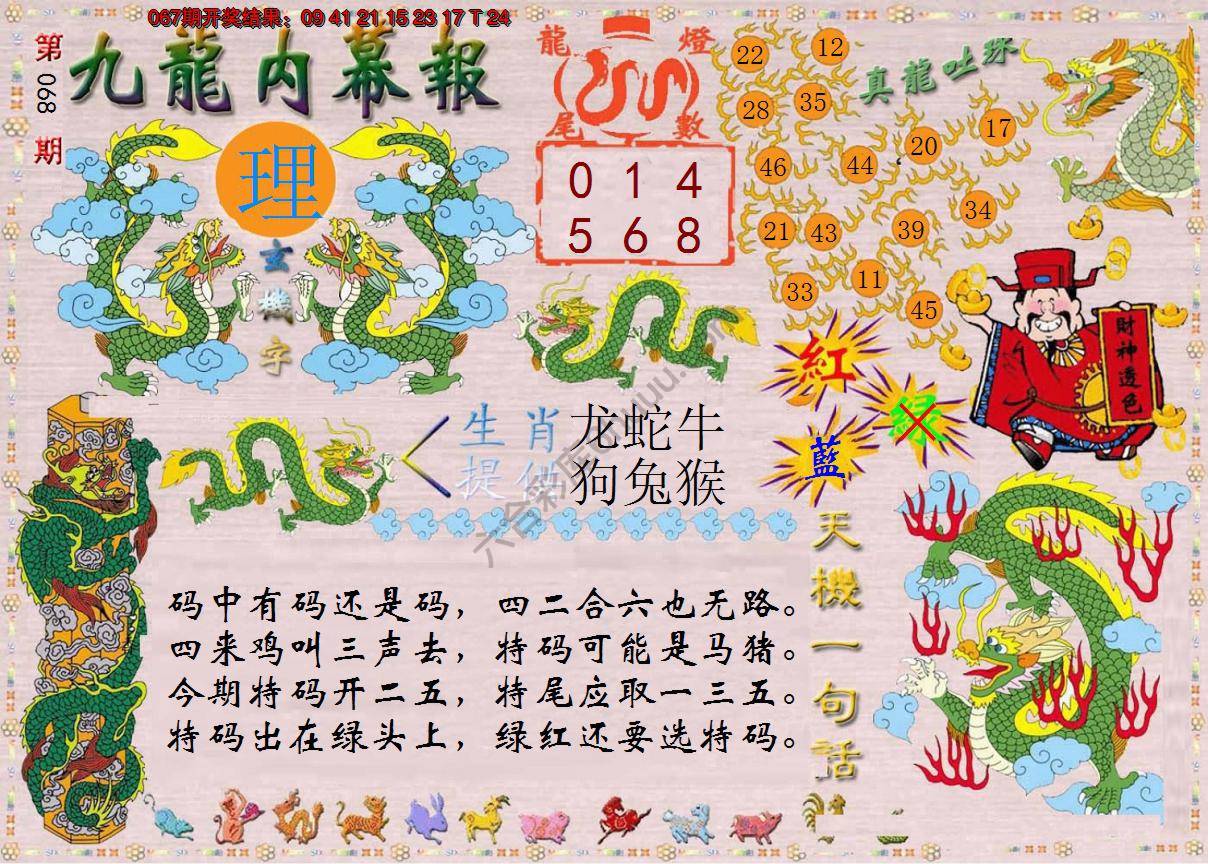 067期开奖结果：09 41 21 15 23 17 T 24
第
068
期
九龍内幕報
理
玄
機
字
龍 燈
尾 數
0 1 4
5 6 8
真龍吐珠
22 12
28 35
46 44 20 17
21 43 39 34
33 11 45
財神透色
紅
绿
藍
生肖 龙蛇牛
提供 狗兔猴
天機一句話
码中有码还是码，四二合六也无路。
四来鸡叫三声去，特码可能是马猪。
今期特码开二五，特尾应取一三五。
特码出在绿头上，绿红还要选特码。